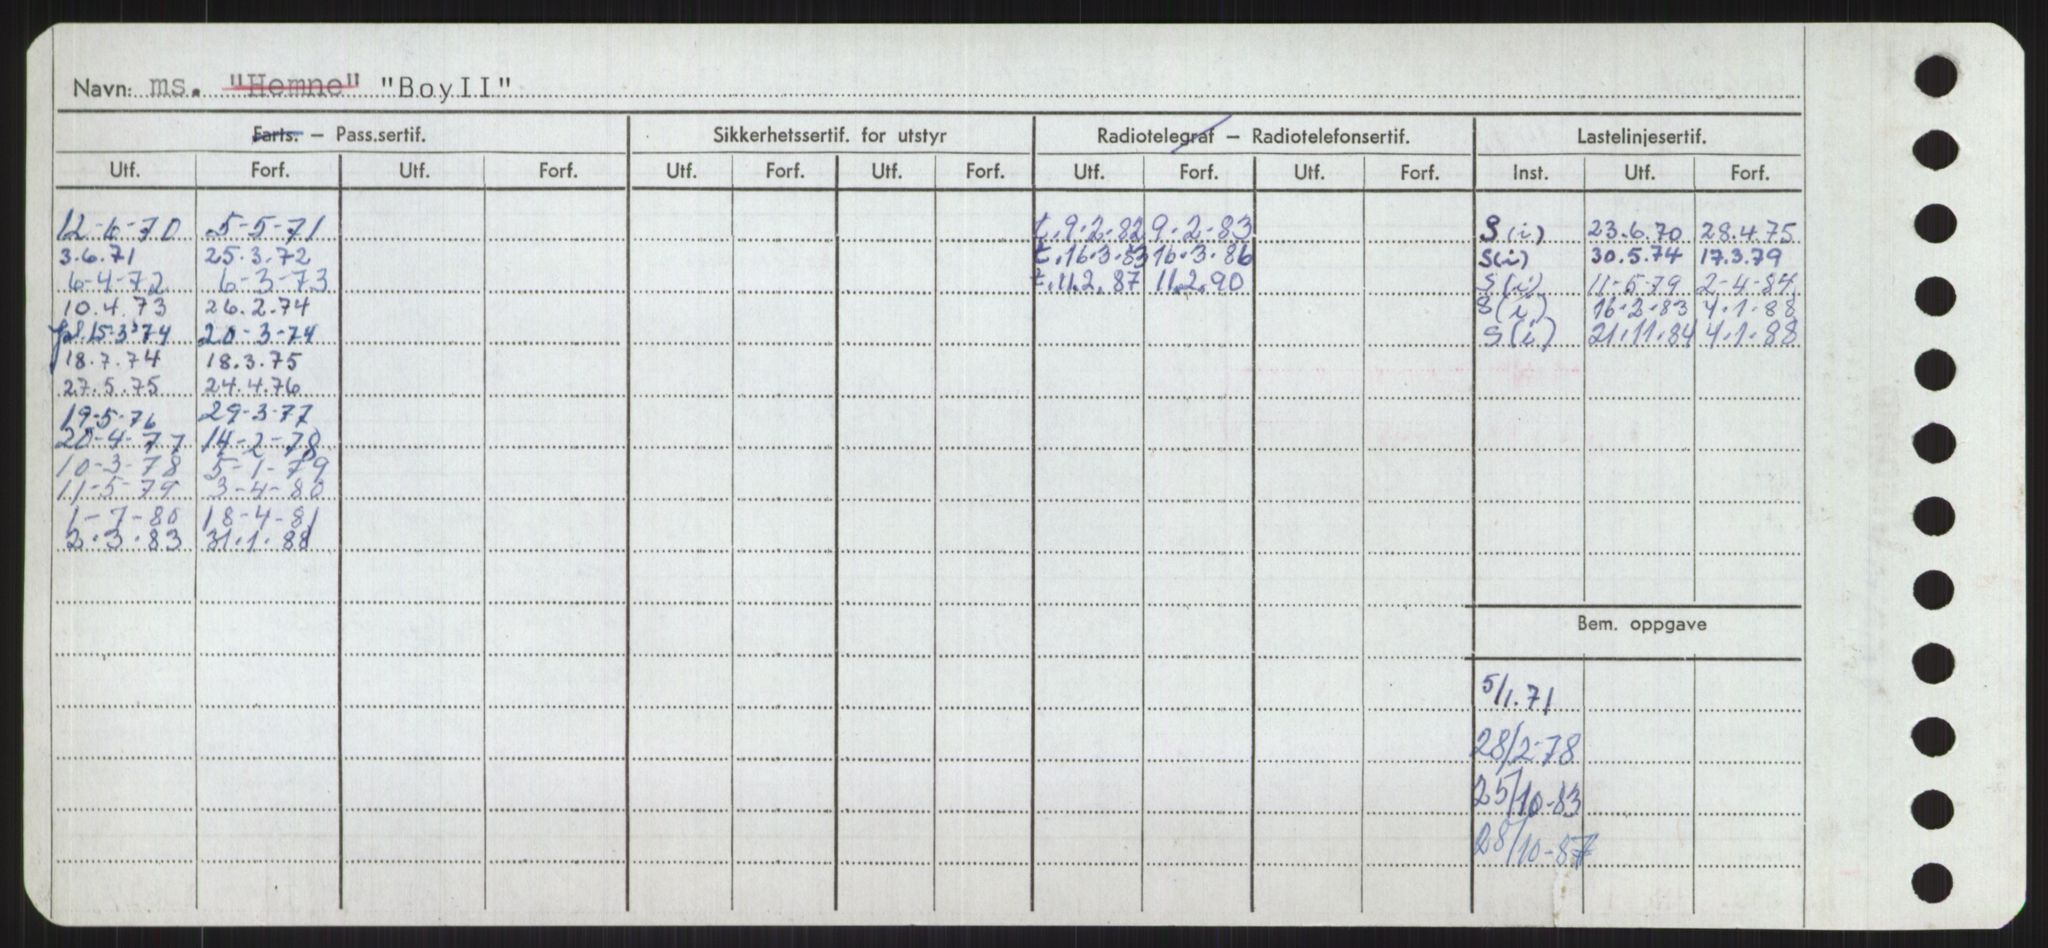 Navn: ms. "Hemne" "BoyII"
Farts. – Pass.sertif. Sikkerhetssertif. for utstyr Radiotelegraf – Radiotelefonsertif. Lastelinjesertif.
Utf. Forf. Utf. Forf. Utf. Forf. Utf. Forf. Utf. Forf. Utf. Forf. Inst. Utf. Forf.
12-6-70 5-5-71 t.9.2.82 9.2.83 S(i) 23.6.70 28.4.75
3.6.71 25.3.72 t.16.3.83 16.3.86 S(i) 30.5.74 17.3.79
6-4-72 6-3-73 t.11.2.87 11.2.90 S(i) 11-5-79 2-4-84
10.4.73 26.2.74 S(i) 16.2.83 4.1.88
15-3-74 20-3-74 S(i) 21.11.84 4.1.88
18.7.74 18.3.75
27.5.75 24.4.76
19-5-76 29-3-77
20-4-77 14-2-78
10-3-78 5-1-79
11-5-79 3-4-80
1-7-80 18-4-81
2.3.83 31.1.88
Bem. oppgave
5/1.71
28/2-78
25/10-83
28/10-87